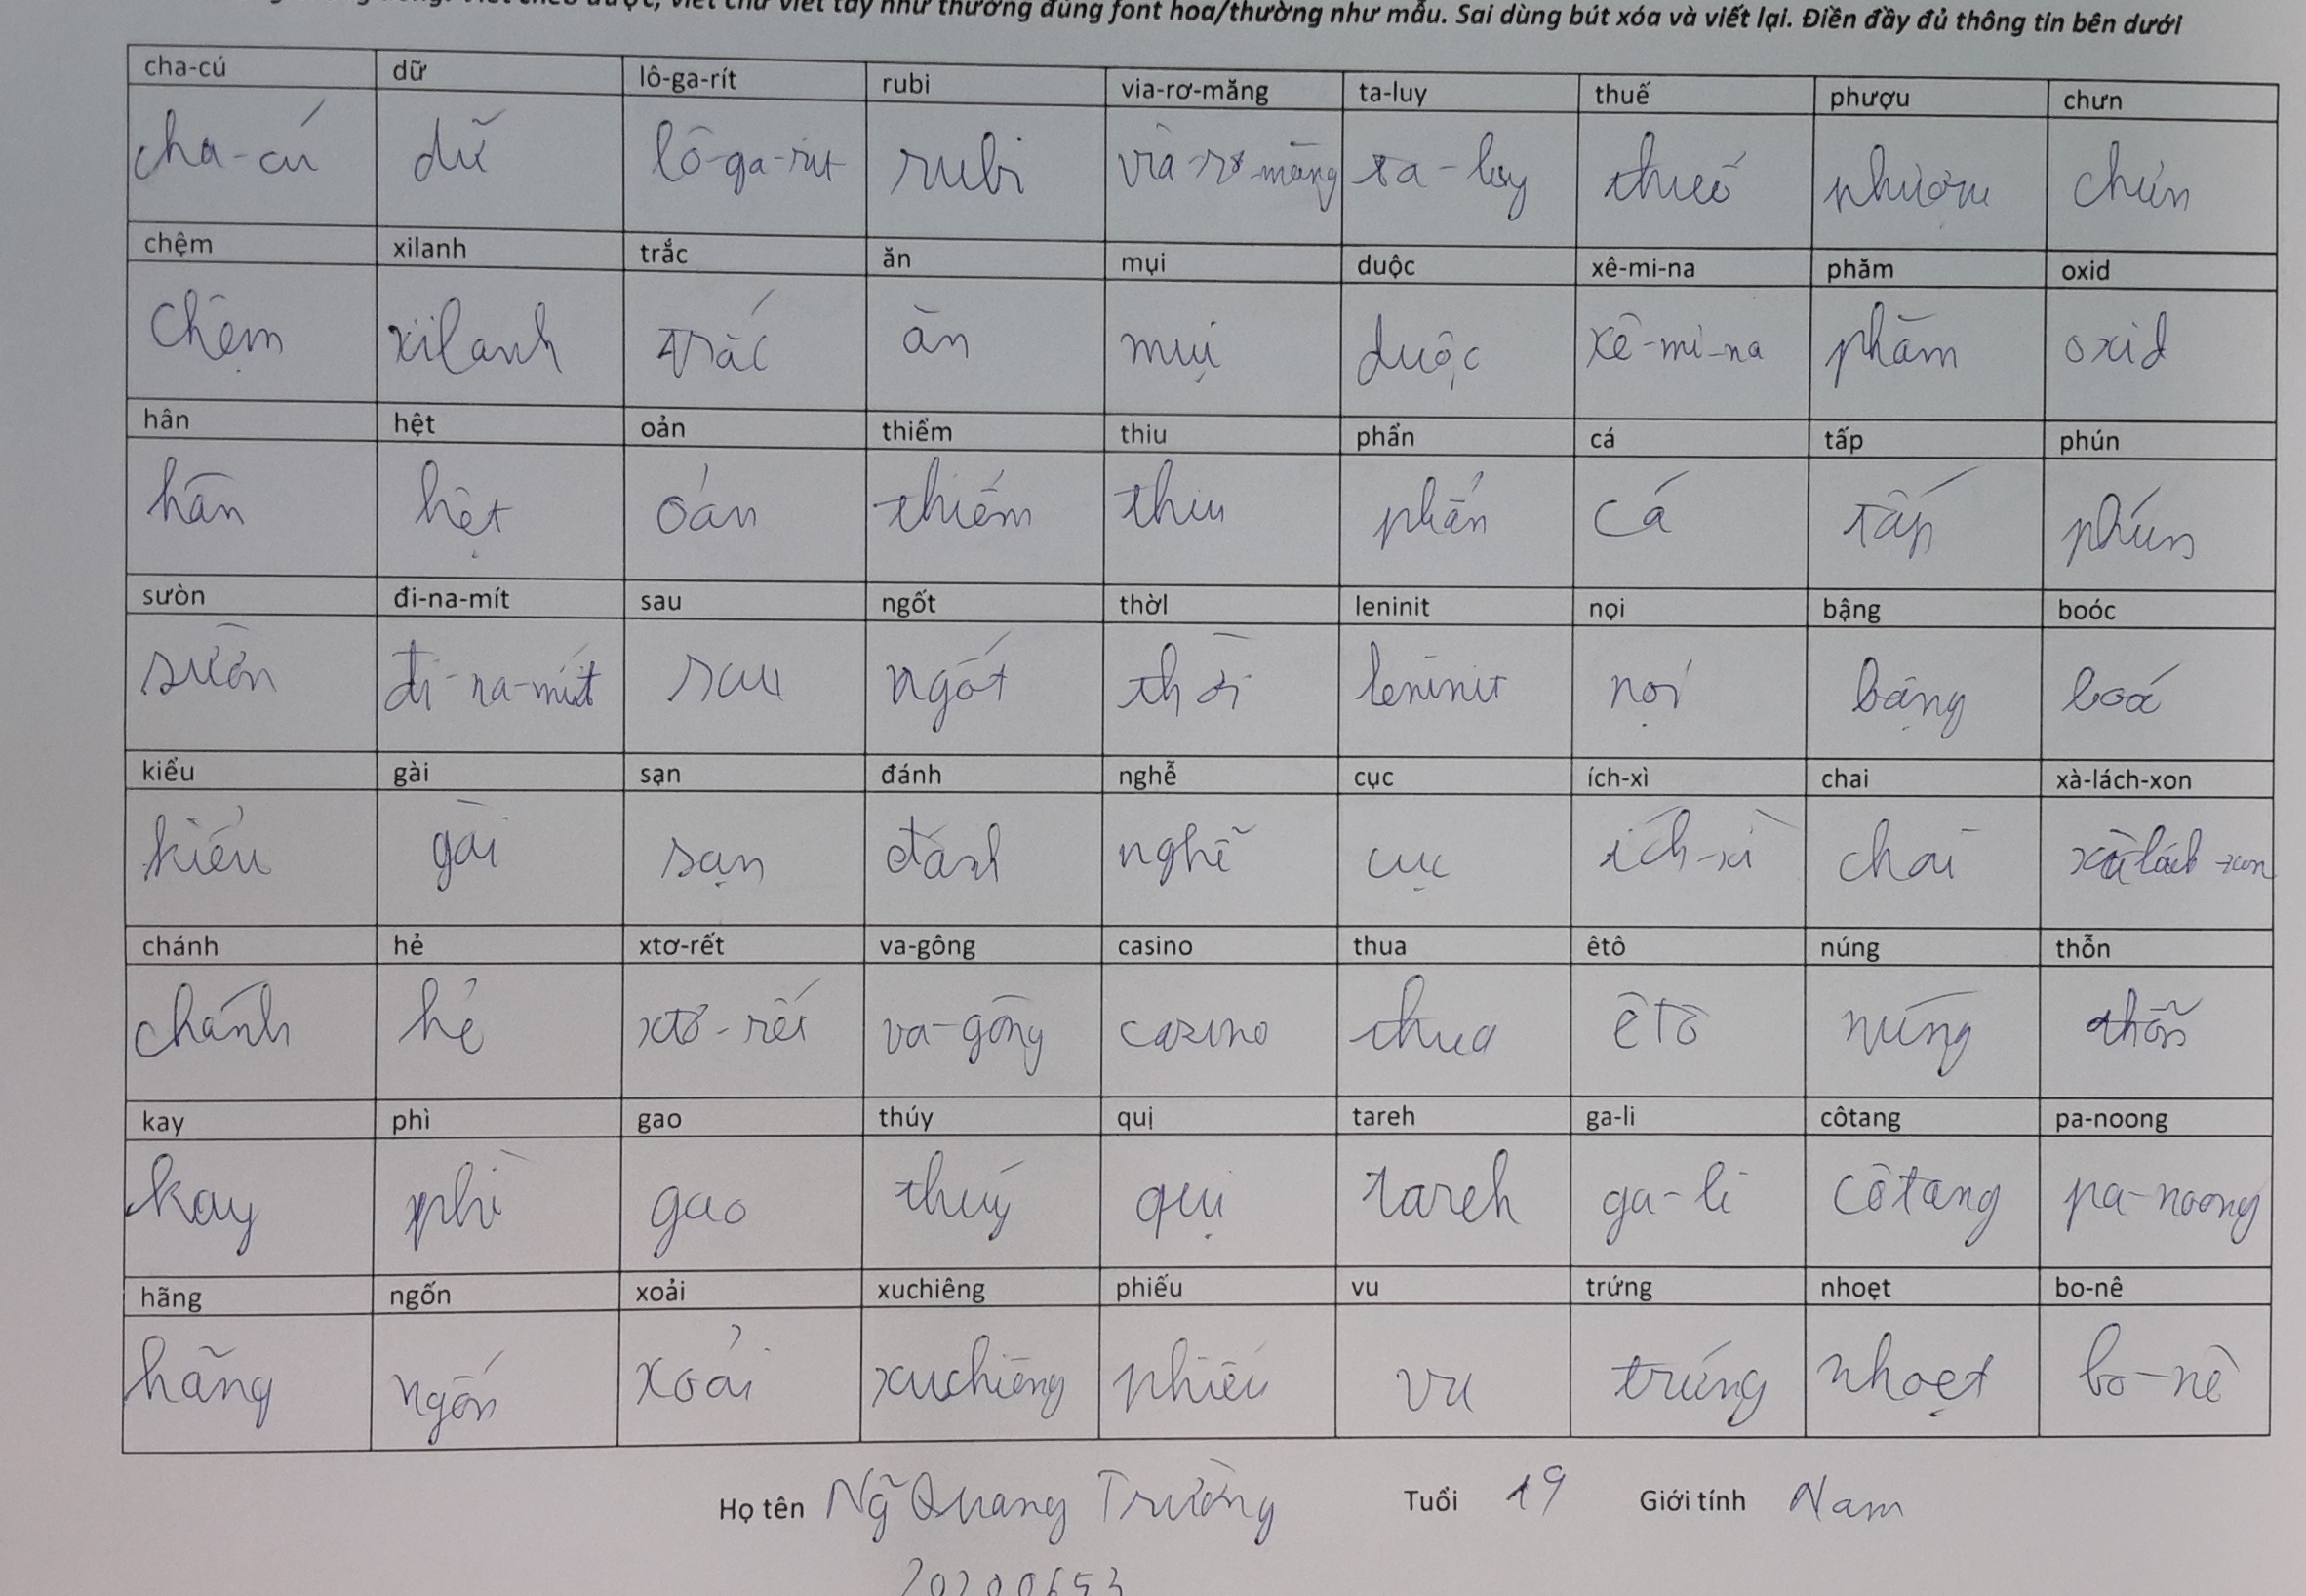 viết chữ viết tay như thường đúng font hoa/thường như mẫu. Sai dùng bút xóa và viết lại. Điền đầy đủ thông tin bên dưới
cha-cú dữ lô-ga-rít rubi via-rơ-măng ta-luy thuế phượu chưn
cha-cú dữ lô-ga-rít rubi via-rơ-măng ta-luy thuế phượu chưn
chệm xilanh trắc ăn mụi duộc xê-mi-na phăm oxid
chệm xilanh trắc ăn mụi duộc xê-mi-na phăm oxid
hân hệt oản thiểm thiu phẩn cá tấp phún
hân hệt oản thiểm thiu phẩn cá tấp phún
sườn đi-na-mít sau ngốt thờl leninit nọi bậng boóc
sườn đi-na-mít sau ngốt thời leninit nọi bậng boó
kiểu gài sạn đánh nghễ cục ích-xì chai xà-lách-xon
kiểu gài sạn đánh nghễ cục ích-xì chai xà-lách-xon
chánh hẻ xtơ-rết va-gông casino thua êtô núng thỗn
chánh hẻ xtơ-rết va-gông casino thua êtô núng thỗn
kay phì gao thúy quị tareh ga-li côtang pa-noong
kay phì gao thúy quị tareh ga-li côtang pa-noong
hãng ngốn xoải xuchiêng phiếu vu trứng nhoẹt bo-nê
hãng ngốn xoải xuchiêng phiếu vu trứng nhoẹt bo-nê
Họ tên Ng̃ Quang Trường Tuổi 19 Giới tính Nam